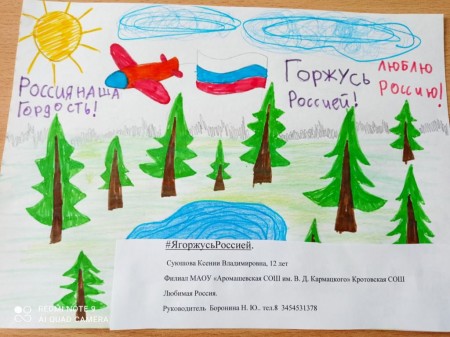 Россия наша
Гордость!
Горжусь
Россией!
Люблю
Россию!
#ЯгоржусьРоссией.
Суюшова Ксения Владимировна, 12 лет
Филиал МАОУ «Аромашевская СОШ им. В. Д. Кармацкого» Кротовская СОШ
Любимая Россия.
Руководитель Боронина Н. Ю., тел.8 3454531378
REDMI NOTE 9
AI QUAD CAMERA